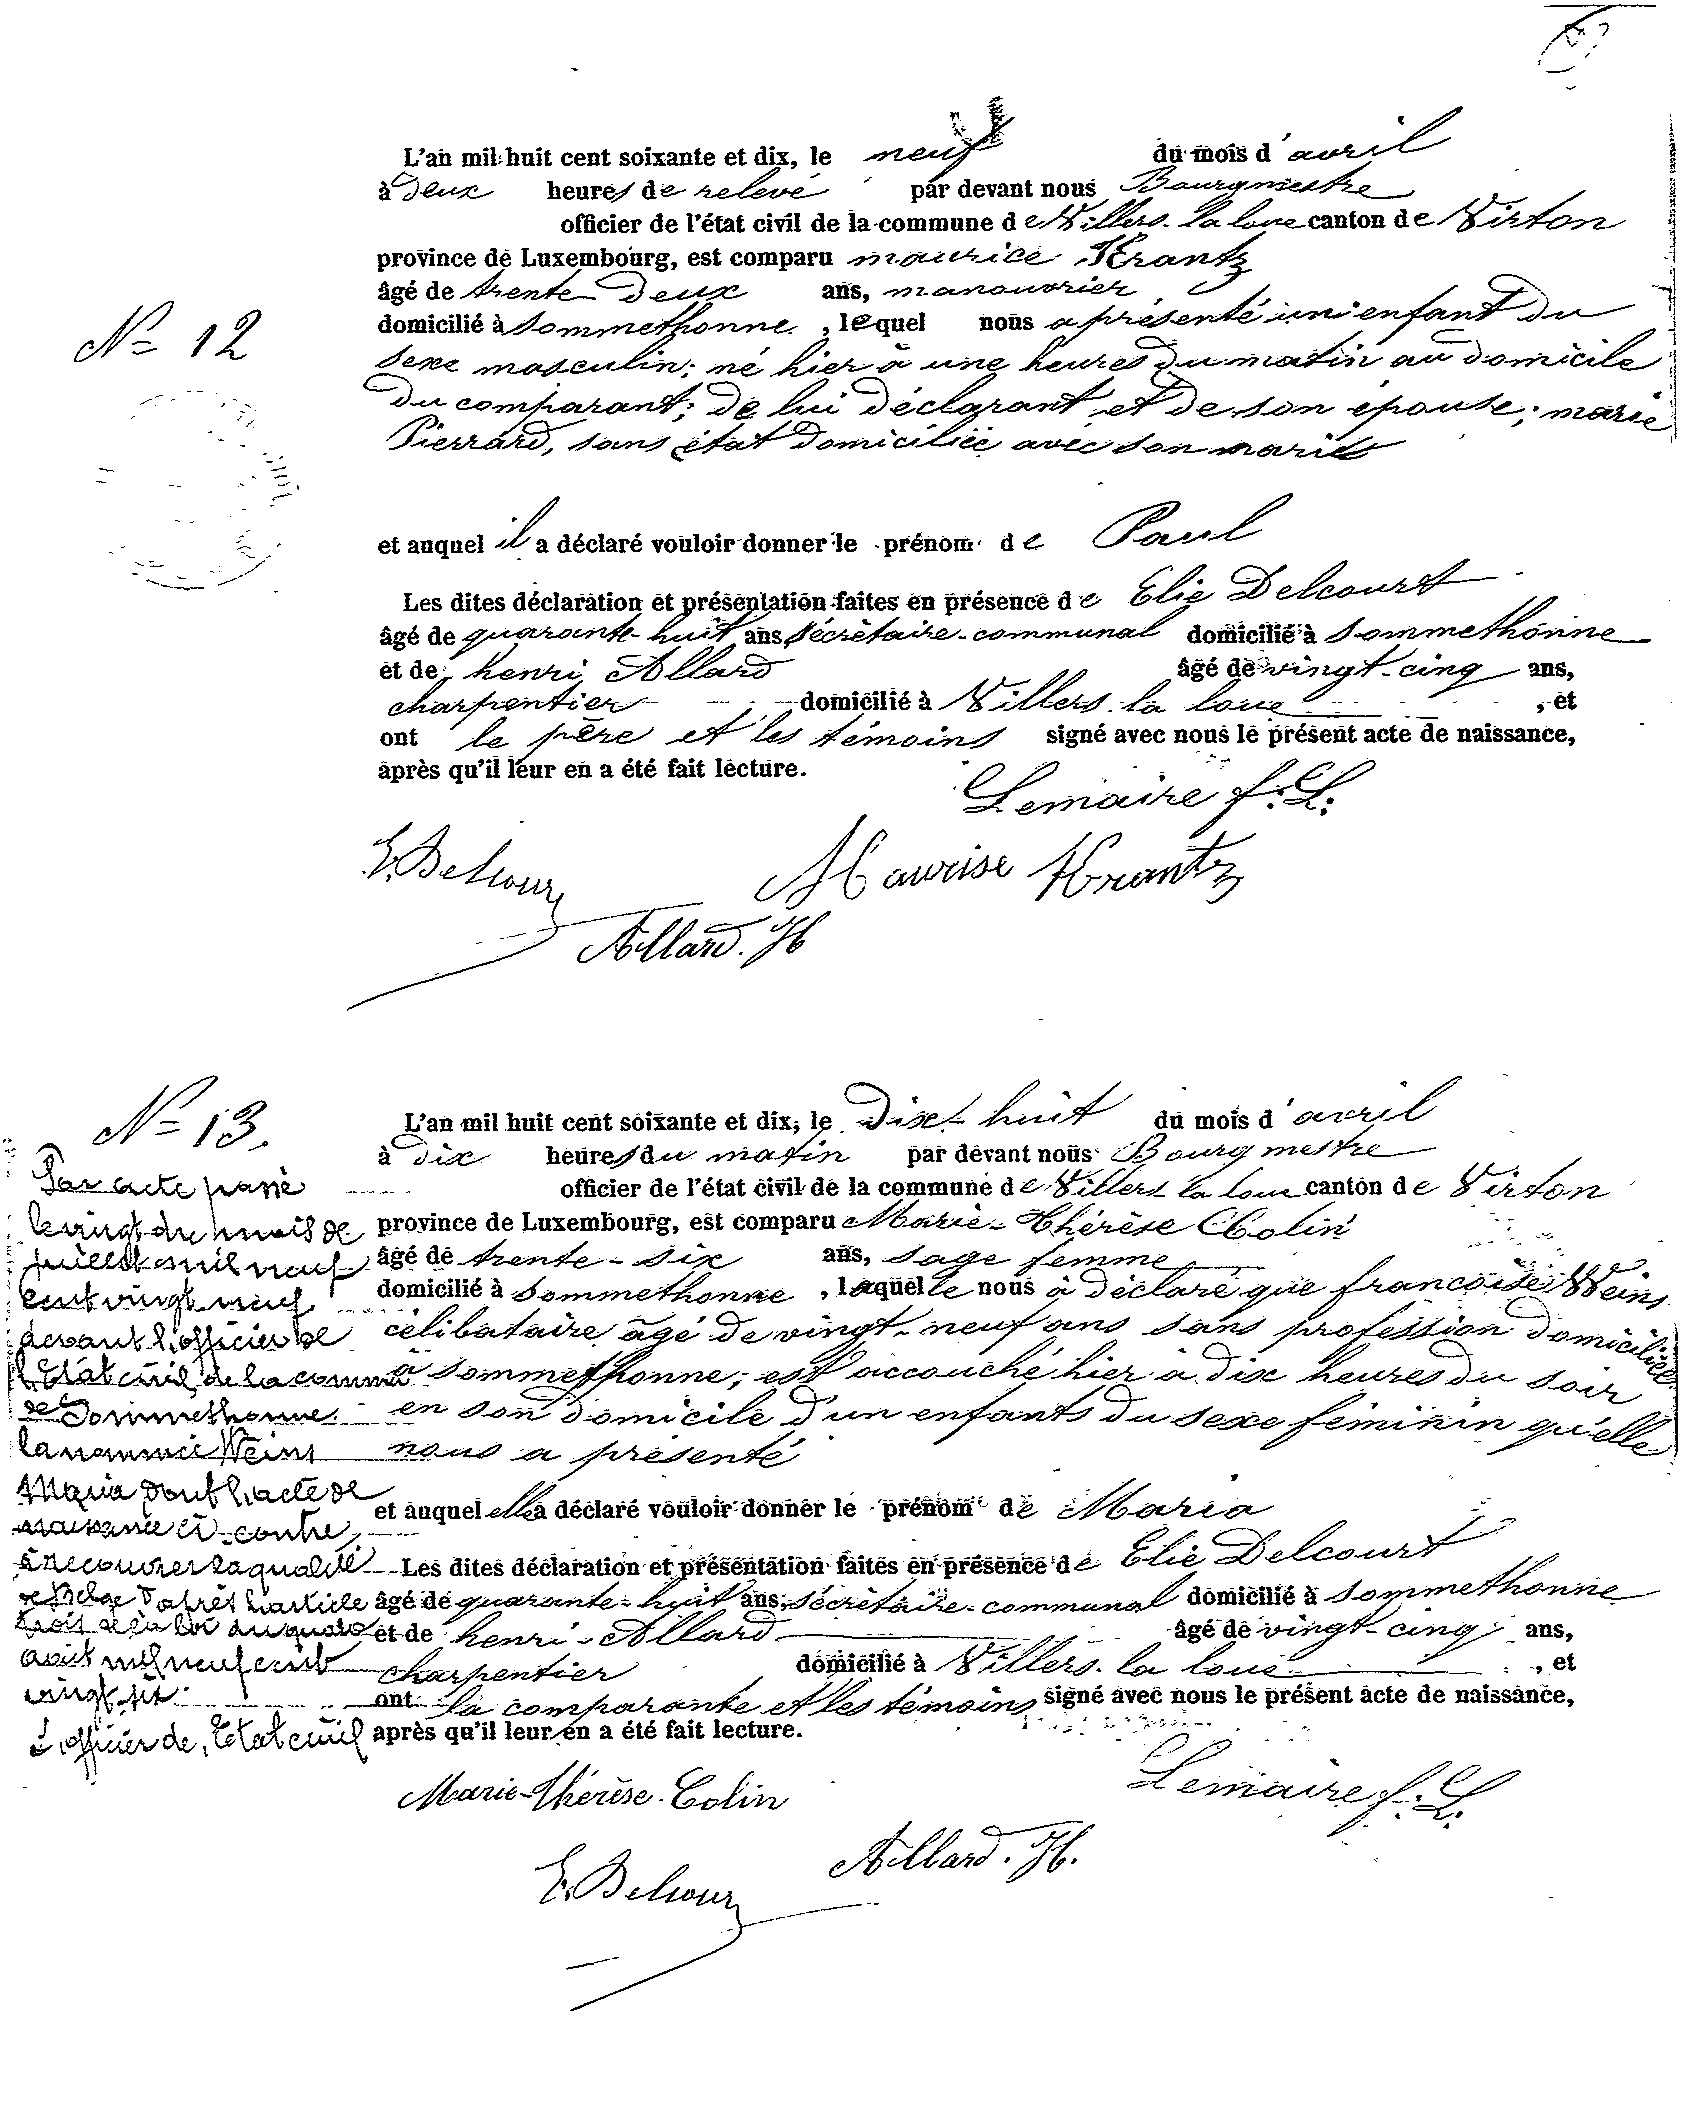 L'an mil huit cent soixante et dix, le neuf du mois d'avril
à deux heures de relevé par devant nous Bourgmestre
officier de l'état civil de la commune de Villers-la-loue canton de Virton
province de Luxembourg, est comparu maurice Krantz
âgé de trente deux ans, manouvrier
N° 12
domicilié à Sommethonne, lequel nous a présenté un enfant du
sexe masculin; né hier à une heures du matin au domicile
du comparant; de lui déclarant et de son épouse; marie
Pierrard, sans état domiciliée avec son marit
et auquel il a déclaré vouloir donner le prénom de Paul
Les dites déclaration et présentation faites en présence de Elie Delcourt
âgé de quarante-huit ans, sécrètaire-communal domicilié à Sommethonne
et de henri Allard âgé de vingt-cinq ans,
charpentier domicilié à Villers-la loue, et
ont le père et les témoins signé avec nous le présent acte de naissance,
après qu'il leur en a été fait lecture.
Lemaire f:L:
E. Delcour
Maurise Krantz
Allard. H
N° 13.
L'an mil huit cent soixante et dix, le dixt-huit du mois d'avril
à dix heures du matin par devant nous Bourgmestre
officier de l'état civil de la commune de Villers la loue canton de Virton
province de Luxembourg, est comparu Marie-Thérèse Colin
âgé de trente-six ans, sage femme
domicilié à Sommethonne, laquelle nous à déclaré que francoise Weins
célibataire âgé de vingt-neuf ans sans profession domiciliée
à Sommethonne; est accouché hier à dix heures du soir
en son domicile d'un enfants du sexe féminin qu'elle
nous a présenté
et auquel elle a déclaré vouloir donner le prénom de Maria
Les dites déclaration et présentation faites en présence de Elie Delcourt
âgé de quarante-huit ans, sécrètaire-communal domicilié à Sommethonne
et de henri-Allard âgé de vingt-cinq ans,
charpentier domicilié à Villers-la loue, et
ont la comparante et les témoins signé avec nous le présent acte de naissance,
après qu'il leur en a été fait lecture.
Par acte passé
le vingt du mois de
juillet mil neuf
cent vingt neuf
devant l'officier de
l'Etat civil de la commu
de Sommethonne
la nommée Weins
Maria dont l'acte de
naissance ci-contre
a recouvrer la qualité
de Belge d'après l'article
trois de la loi du quatre
août mil neuf cent
vingt six.
L'officier de l'Etat civil
Marie-thérèse-Colin
Lemaire f:L:
Allard. H.
E. Delcour